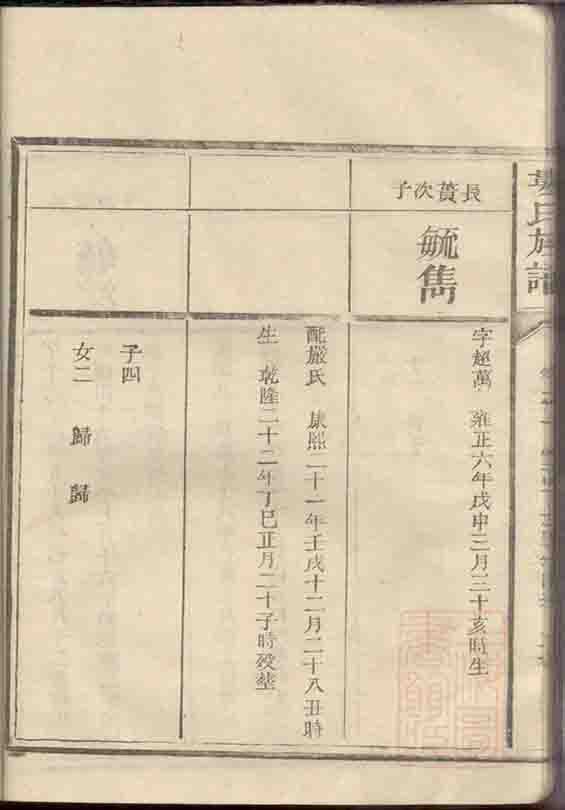 氏族譜
長贊次子
毓雋
字超萬 雍正六年戊申三月三十亥時生
配嚴氏 康熙二十一年壬戌十二月二十八丑時
生 乾隆二十二年丁巳正月二十子時歿塟
子四
女二 歸 歸